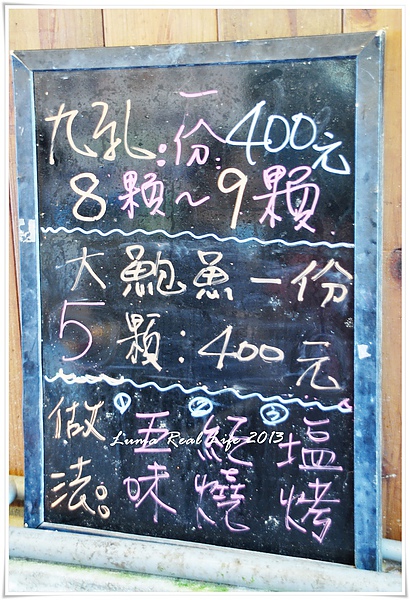 九孔:一份:400元
8顆~9顆
大鮑魚一份
5顆:400元
做法:
①五味
②紅燒
③塩烤
Luno Real Life 2013